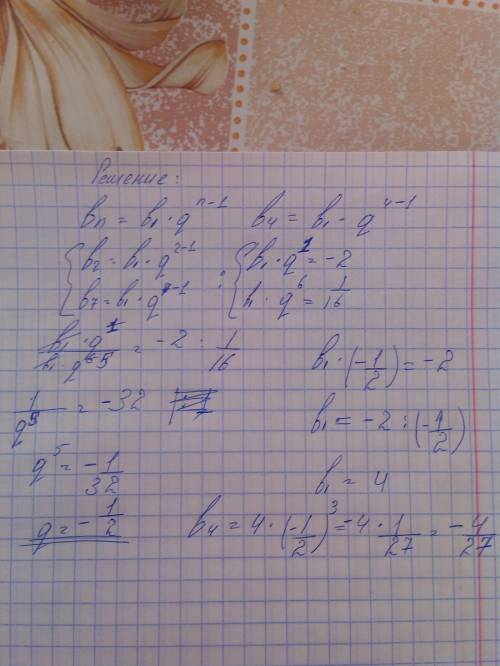 Решение:
bn = b1 · q^n-1    b4 = b1 · q^4-1
{ b2 = b1 · q^2-1    : { b1 · q^1 = -2
{ b7 = b1 · q^7-1    { b1 · q^6 = 1/16
b1 · q^1 / b1 · q^6 5 = -2 : 1/16    b1 · (-1/2) = -2
1/q^5 = -32    b1 = -2 : (-1/2)
q^5 = -1/32    b1 = 4
q = -1/2    b4 = 4 · (-1/2)^3 = -4 · 1/27 = -4/27